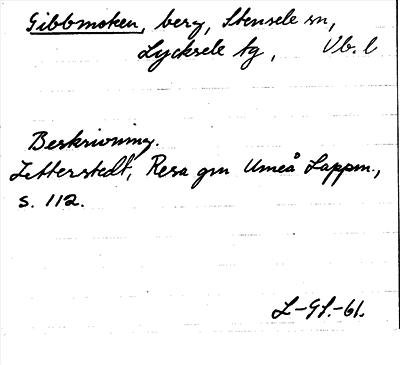 Gibbmoken, berg, Stensele sn,
Lycksele tg, Vb. l
Beskrivning.
Zetterstedt, Resa gm Umeå Lappm.,
s. 112.
L-Gl.-61.